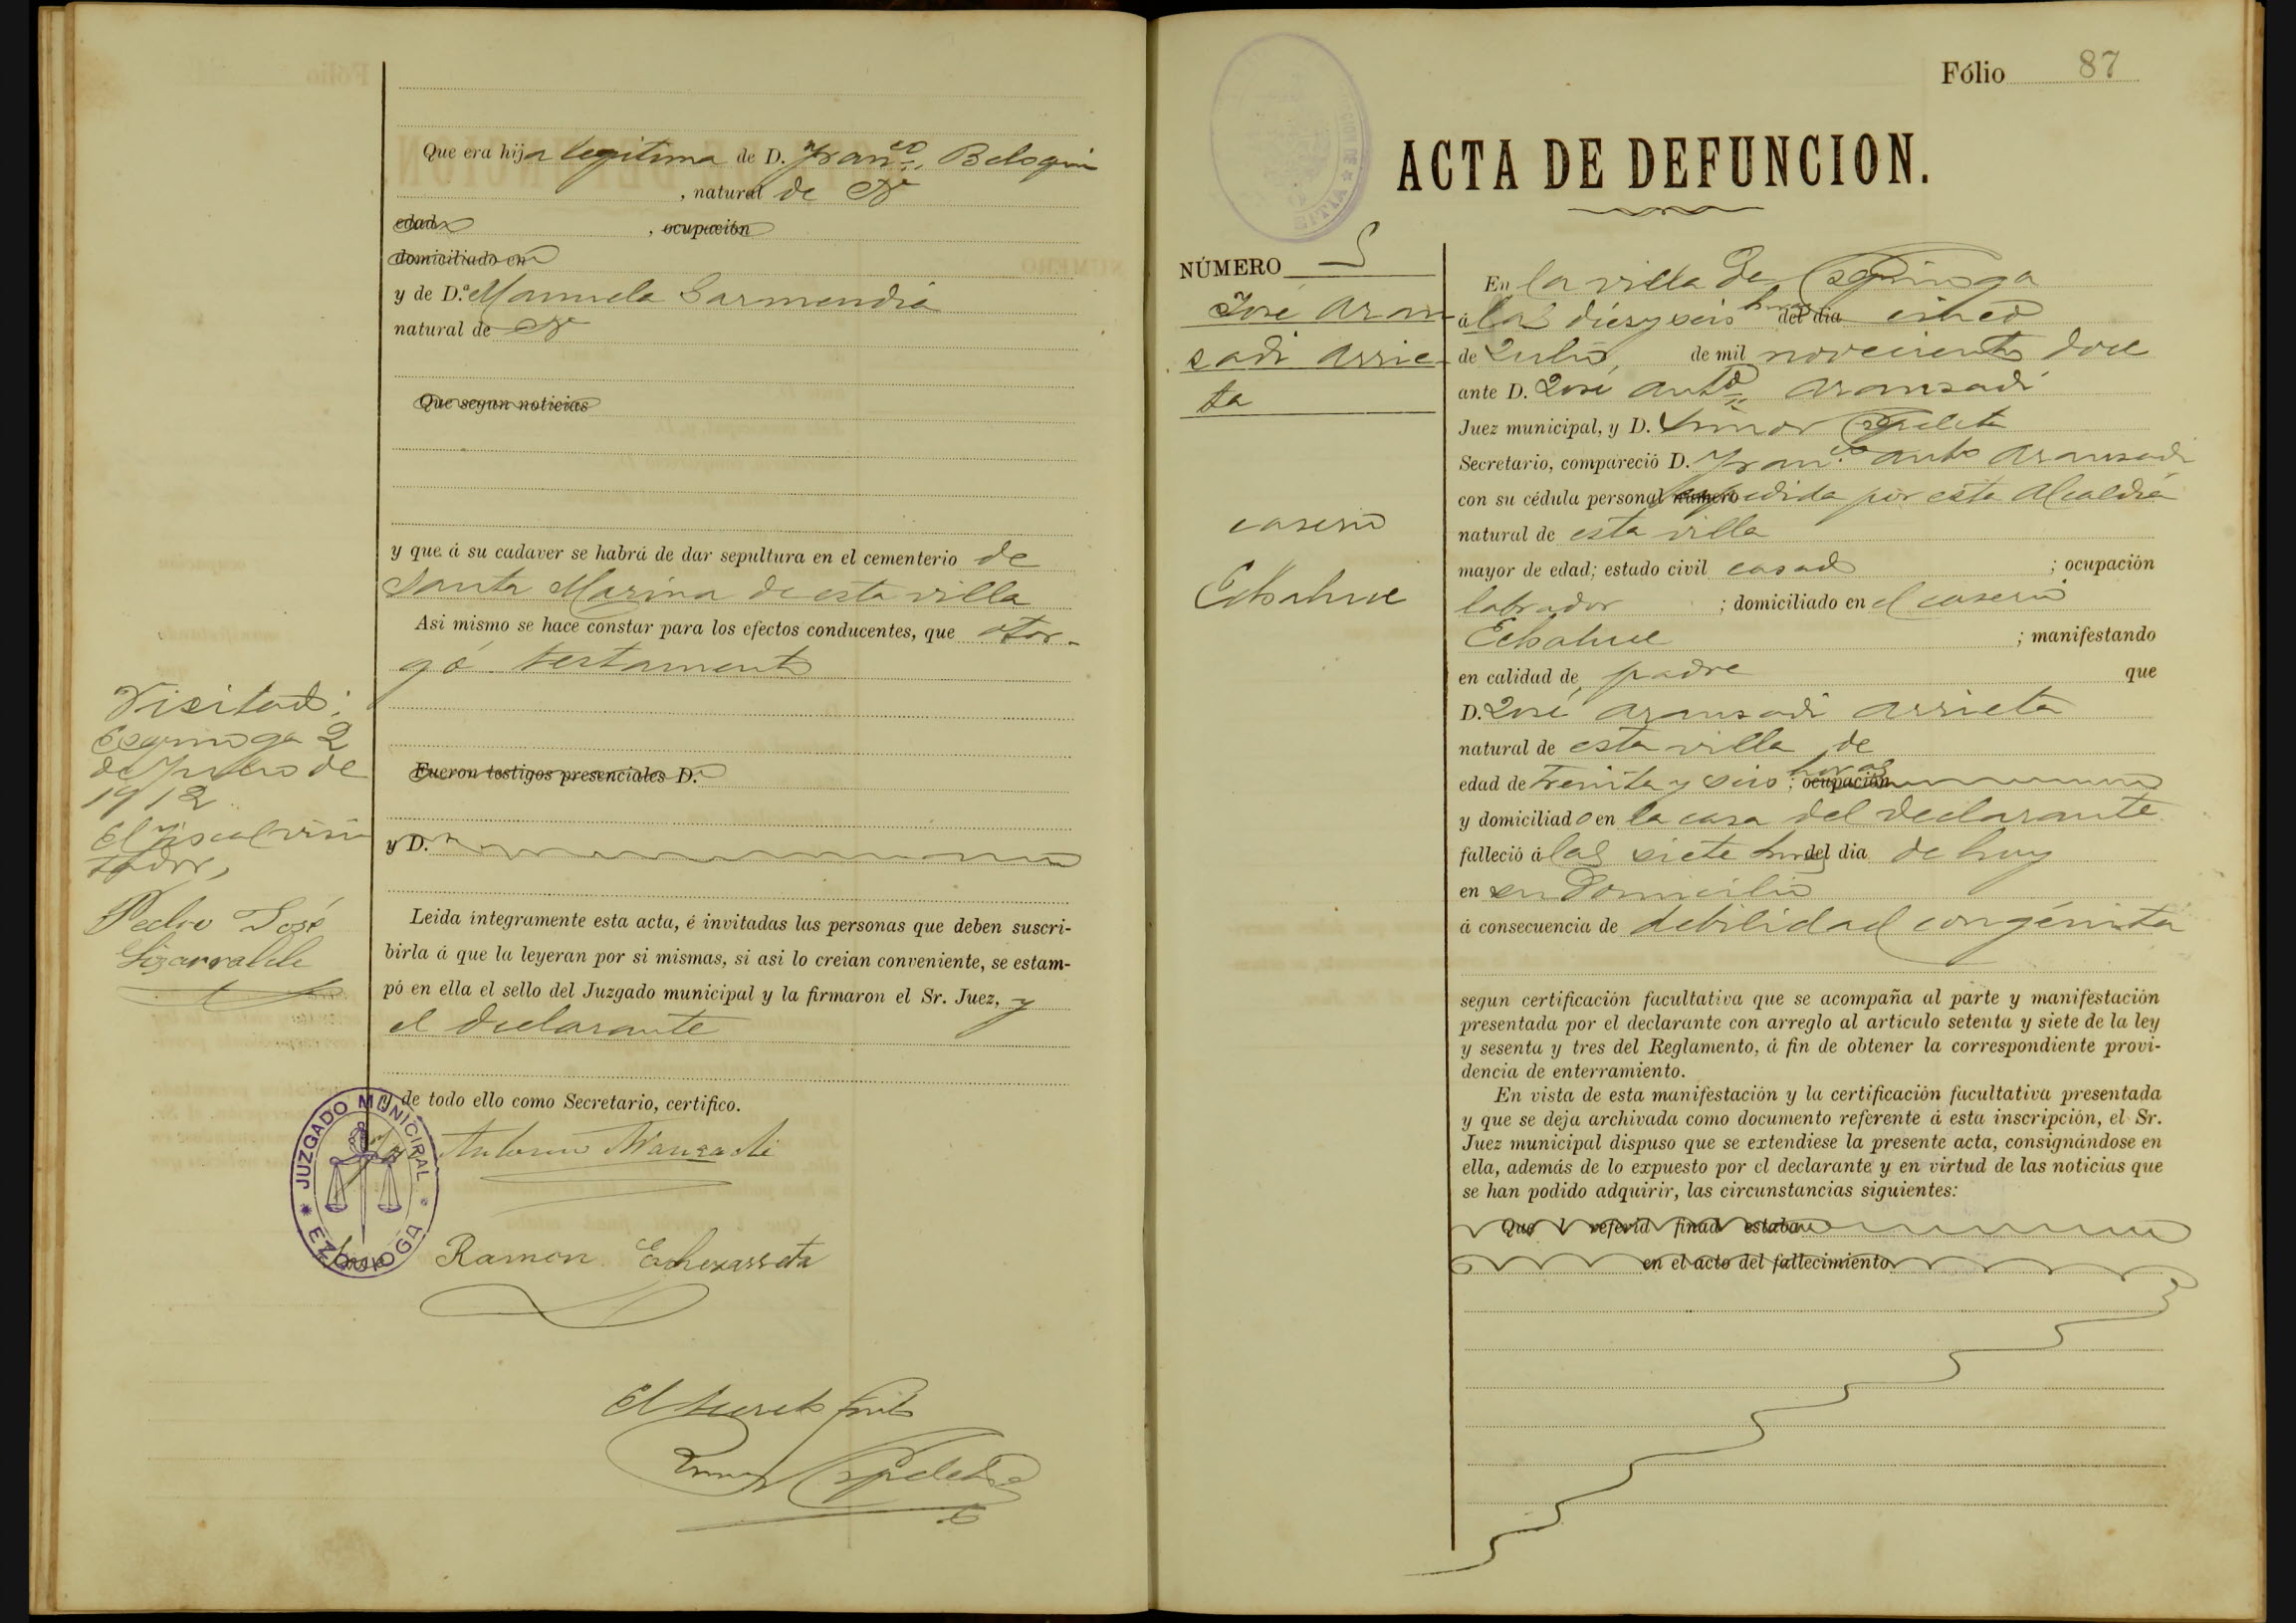 Que era hija legitima de D. Franco. Beloqui
, natural de Na
edad , ocupación
domiciliado en
y de D.ª Manuela Garmendia
natural de Na
Que segun noticias
y que á su cadaver se habrá de dar sepultura en el cementerio de
Santa Marina de esta villa
Asi mismo se hace constar para los efectos conducentes, que otor-
gó testamento
Fueron testigos presenciales D.
y D.
Leida íntegramente esta acta, é invitadas las personas que deben suscri-
birla á que la leyeran por si mismas, si asi lo creian conveniente, se estam-
pó en ella el sello del Juzgado municipal y la firmaron el Sr. Juez, y
el declarante
y de todo ello como Secretario, certifico.
José Antonio Aranzadi
Ramon Echezarreta
El Secreto
Visitado;
Ezquioga 2
de Julio de
1912
El Fiscal visi
tador,
Pedro José
Lizarralde
JUZGADO MUNICIPAL
EZQUIOGA
Fólio 87
ACTA DE DEFUNCION.
NÚMERO 5
José Aran
sadi Arrie-
ta
caserio
En la villa de Ezquioga
á las diez y seis horas del dia cinco
de Julio, de mil novecientos doce
ante D. José Anto. Aransadi
Juez municipal, y D.
Secretario, compareció D. Franco. Anto Aransadi
con su cédula personal número expedida por esta Alcaldia
natural de esta villa
mayor de edad; estado civil casado ; ocupación
labrador ; domiciliado en el caserio
; manifestando
en calidad de padre que
D. José Aransadi Arrieta
natural de esta villa de
edad de treinta y seis horas ; ocupación
y domiciliado en la casa del declarante
falleció á las siete horas del dia de hoy
en su domicilio
á consecuencia de debilidad congénita
segun certificación facultativa que se acompaña al parte y manifestación
presentada por el declarante con arreglo al articulo setenta y siete de la ley
y sesenta y tres del Reglamento, á fin de obtener la correspondiente provi-
dencia de enterramiento.
En vista de esta manifestación y la certificación facultativa presentada
y que se deja archivada como documento referente á esta inscripción, el Sr.
Juez municipal dispuso que se extendiese la presente acta, consignándose en
ella, además de lo expuesto por el declarante y en virtud de las noticias que
se han podido adquirir, las circunstancias siguientes:
Que l referid finad estaba
en el acto del fallecimiento